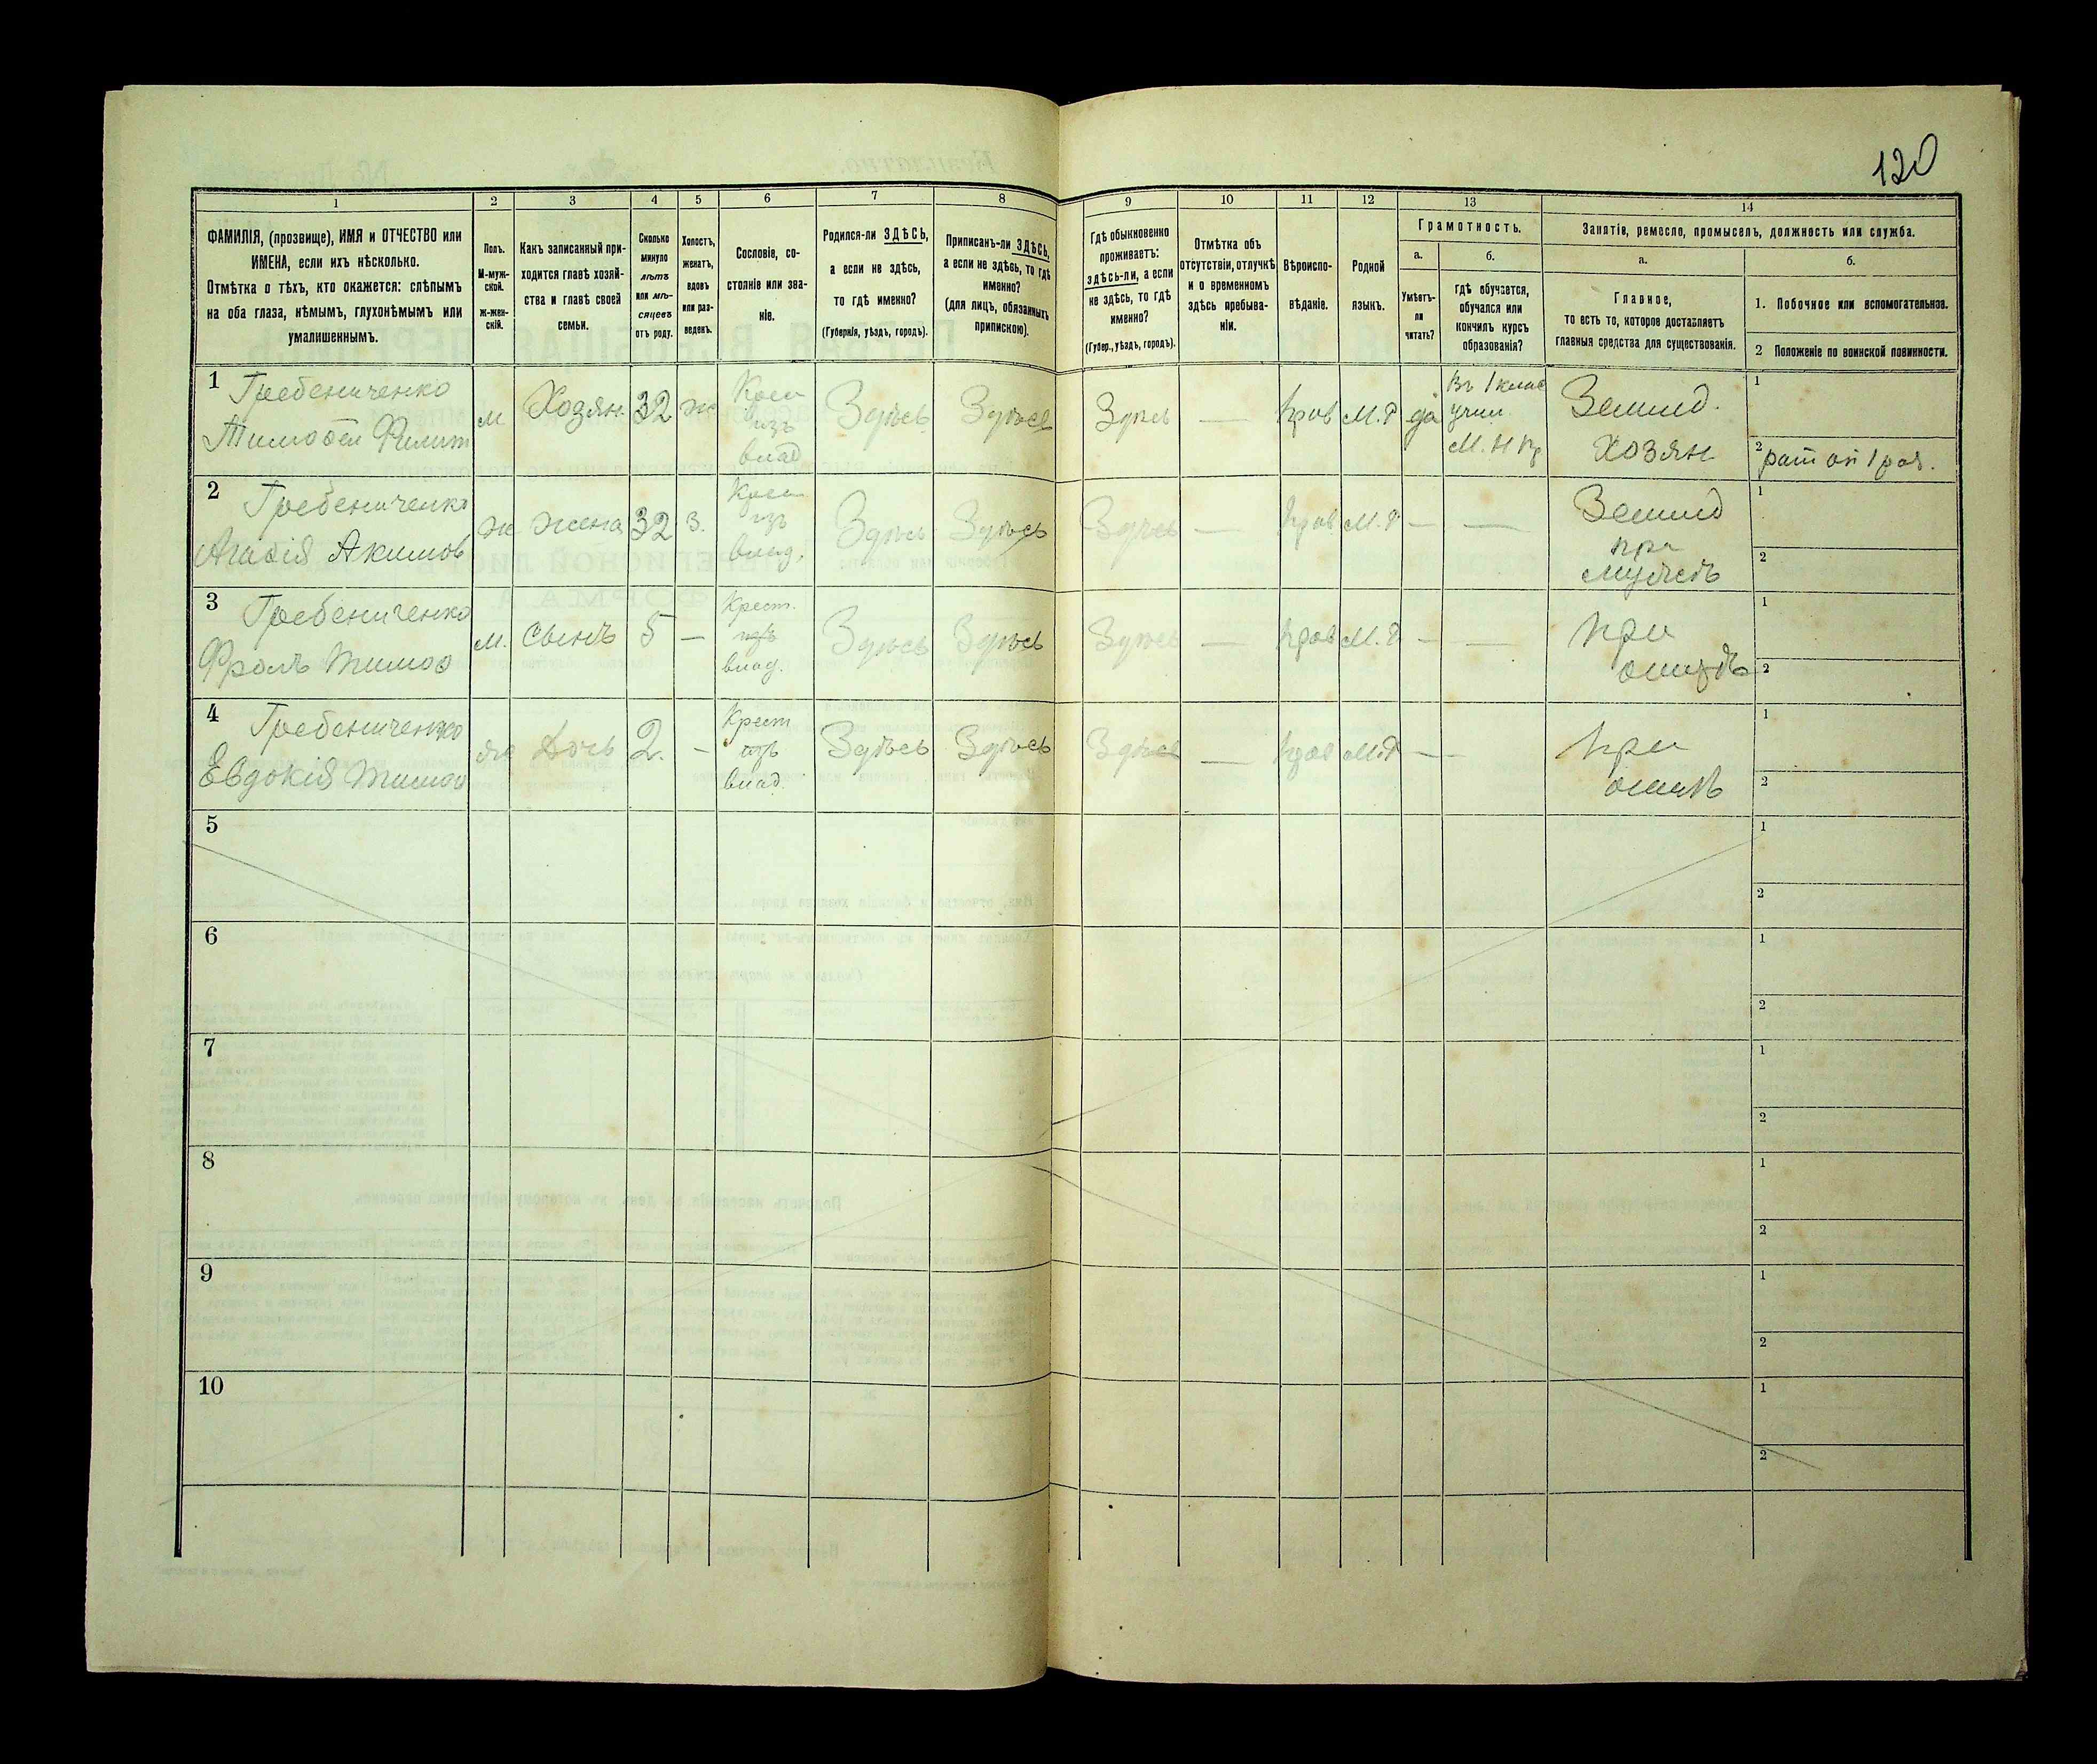 120
1
2
3
4
5
6
7
8
9
10
11
12
13
14
ФАМИЛІЯ, (прозвище), ИМЯ и ОТЧЕСТВО или
ИМЕНА, если ихъ нѣсколько.
Отмѣтка о тѣхъ, кто окажется: слѣпымъ
на оба глаза, нѣмымъ, глухонѣмымъ или
умалишеннымъ.
Полъ.
М-муж-
ской.
ж-жен-
скій.
Какъ записанный при-
ходится главѣ хозяй-
ства и главѣ своей
семьи.
Сколько
минуло
лѣтъ
или мѣ-
сяцевъ
отъ роду.
Холостъ,
женатъ,
вдовъ
или раз-
веденъ.
Сословіе, со-
стояніе или зва-
ніе.
Родился-ли ЗДѢСЬ,
а если не здѣсь,
то гдѣ именно?
(Губернія, уѣздъ, городъ).
Приписанъ-ли ЗДѢСЬ,
а если не здѣсь, то гдѣ
именно?
(для лицъ, обязанныхъ
припискою).
Гдѣ обыкновенно
проживаетъ:
здѣсь-ли, а если
не здѣсь, то гдѣ
именно?
(Губер., уѣздъ, городъ).
Отмѣтка объ
отсутствіи, отлучкѣ
и о временномъ
здѣсь пребыва-
ніи.
Вѣроиспо-
вѣданіе.
Родной
языкъ.
Грамотность.
а.
Умѣетъ-
ли
читать?
б.
гдѣ обучается,
обучался или
кончилъ курсъ
образованія?
Занятіе, ремесло, промыселъ, должность или служба.
а.
Главное,
то есть то, которое доставляетъ
главныя средства для существованія.
б.
1. Побочное или вспомогательное.
2 Положеніе по воинской повинности.
1 Гребениченко
Тимофей Филип
м
Хозян
32
ж
Крест
изъ
влад
Здѣсь
Здѣсь
Здѣсь
—
прав
М.Р
да
Въ 1 клас
учил.
М. Н Пр
Землед.
хозян
1
2 рат оп 1 раз.
2 Гребениченко
Агафія Акимов
ж
жена
32
З.
Крест
изъ
влад.
Здѣсь
Здѣсь
Здѣсь
—
прав
М.Р
—
—
Землед
при
мужѣ
1
2
3 Гребениченко
Фролъ Тимоф
м.
сынъ
5
—
Крест.
изъ
влад.
Здѣсь
Здѣсь
Здѣсь
—
прав
М.Р
—
—
при
отцѣ
1
2
4 Гребениченко
Евдокія Тимоф
ж
дочь
2.
—
Крест
изъ
влад.
Здѣсь
Здѣсь
Здѣсь
—
прав
М.Р
—
при
1
2
5
1
2
6
1
2
7
1
2
8
1
2
9
1
2
10
1
2